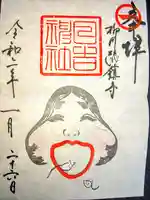 奉拝
柳川総鎮守
日吉神社
令和二年
一月
二十六日